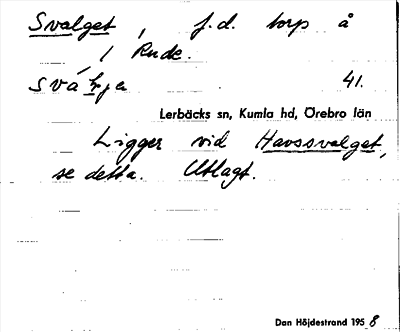 Svalget, f.d. torp å
1/1 Rude.
41.
Lerbäcks sn, Kumla hd, Örebro län
Ligger vid Havssvalget,
se detta. Utlagt.
Dan Höjdestrand 1958